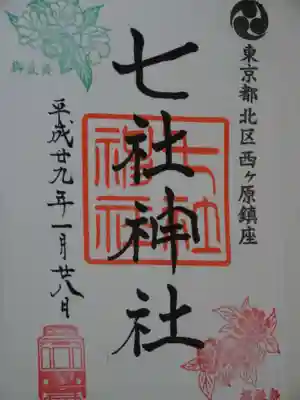 東京都北区西ヶ原鎮座
七社神社
七社神社
平成廿九年一月廿八日